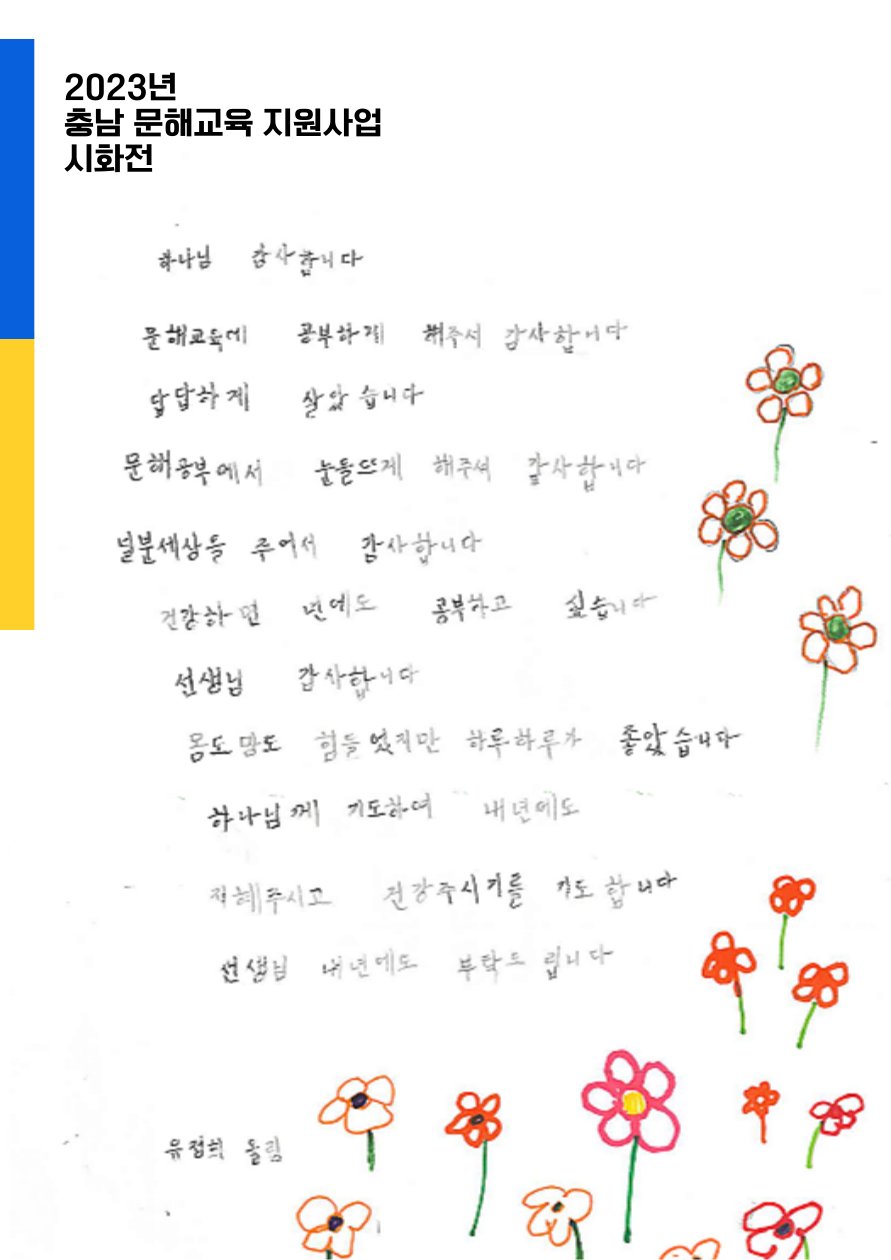 2023년
충남 문해교육 지원사업
시화전
하나님 감사합니다
문해교육에 공부하게 해주서 감사합니다
답답하게 살았습니다
문해공부에서 눈들뜨게 해주셔 감사합니다
넓분세상들 주어서 감사합니다
건강하면 년에도 공부하고 싶습니다
선생님 감사합니다
몸도 맘도 힘들었지만 하루하루가 좋았습니다
하나님께 기도하며 내년에도
지혜주시고 건강주시기를 기도합니다
선생님 내년에도 부탁드립니다
유점희 올림